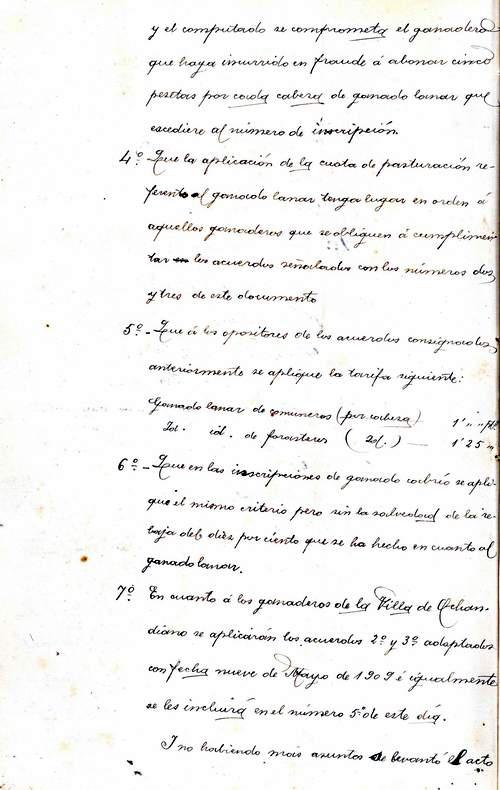 y el computado se comprometa el ganadero
que haya incurrido en fraude á abonar cinco
pesetas por cada cabeza de ganado lanar que
escediere al número de inscripción.
4º Que la aplicación de la cuota de pasturación re-
ferente al ganado lanar tenga lugar en orden á
aquellos ganaderos que se obliguen á cumplimen
tar los acuerdos señalados con los números dos
y tres de este documento
5º- Que á los opositores de los acuerdos consignados
anteriormente se aplique la tarifa siguiente:
Ganado lanar de comuneros (por cabeza) — 1'" Pts
Id. id. de forasteros (Id.) — 1'25 "
6º- Que en las inscripciones de ganado cabrío se apli-
que el mismo criterio pero sin la salvedad de la re-
baja del diez por ciento que se ha hecho en cuanto al
ganado lanar.
7º En cuanto á los ganaderos de la Villa de Ochan-
diano se aplicarán los acuerdos 2º y 3º adoptados
con fecha nueve de Mayo de 1909 é igualmente
se les incluirá en el número 5º de este día.
I no habiendo más asuntos se levantó el acto